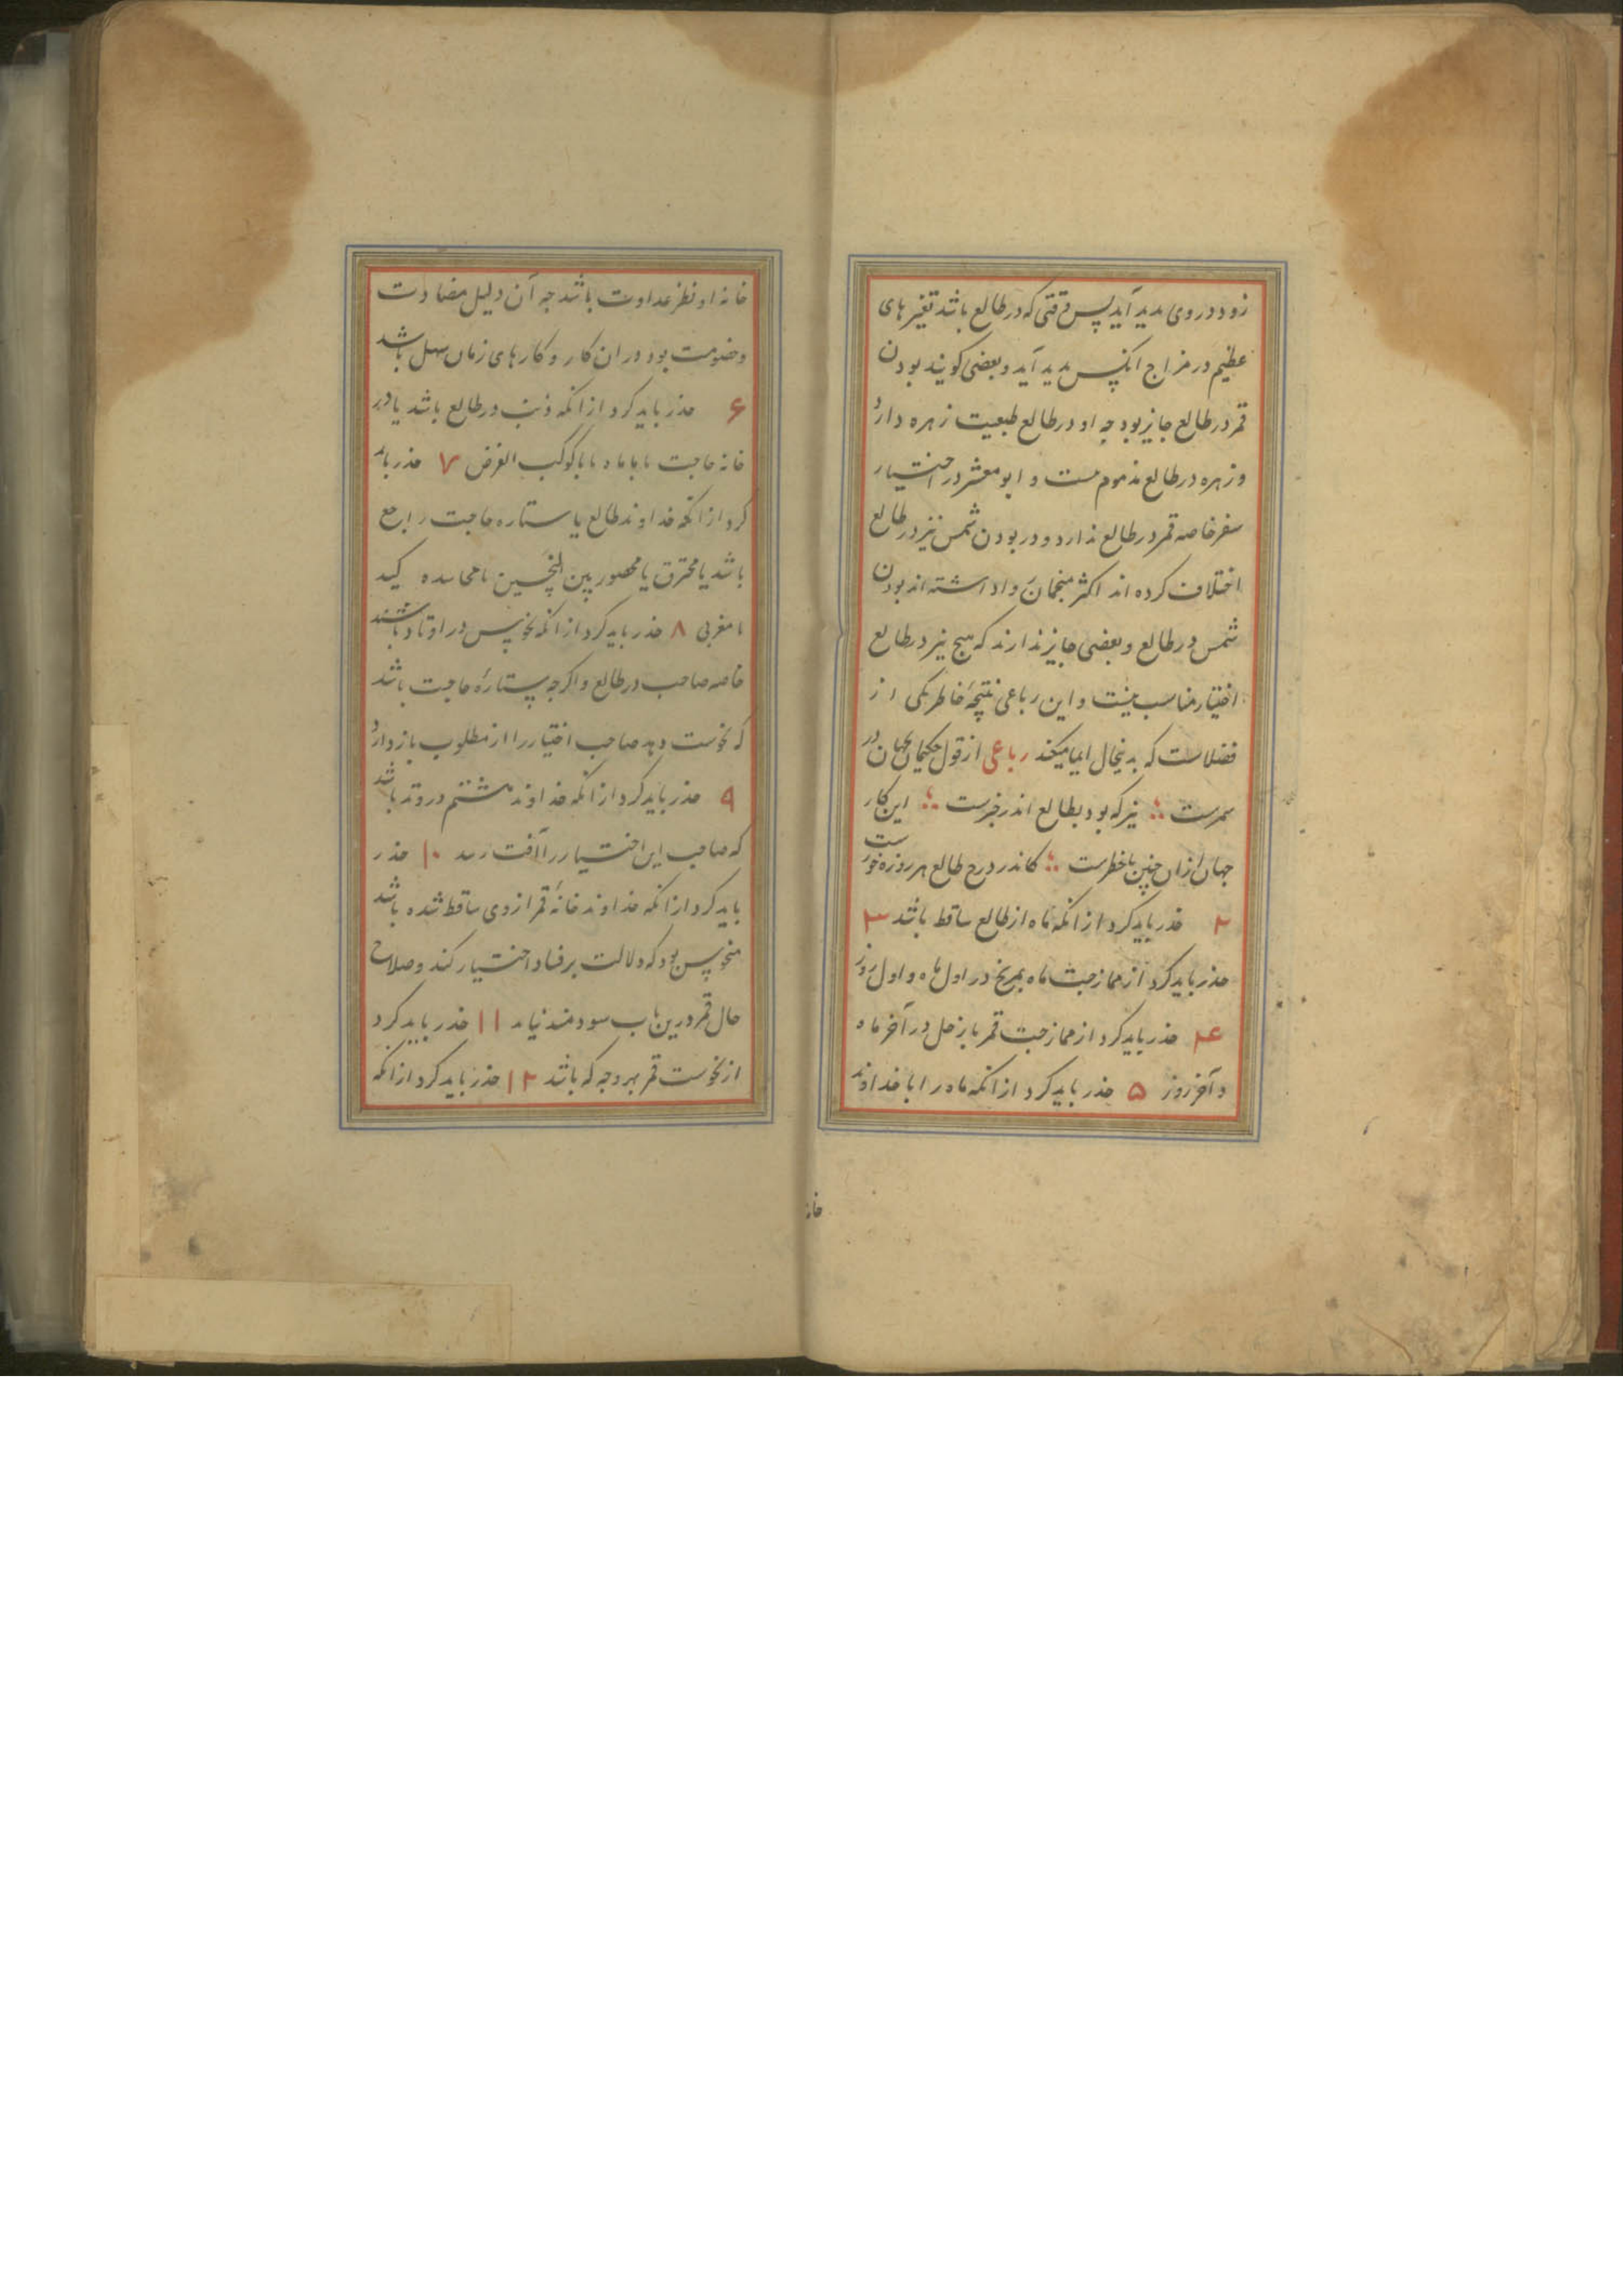 زود در وی بدید آید پس وقتی که در طالع باشد تغیرهای
عظیم در مزاج آنکس بدید آید و بعضی کویند بودن
قمر در طالع جایز بود جه او در طالع طبیعت زهره دارد
و زهره در طالع مذموم نیست و ابو معشر در اختیار
سفر خاصه قمر در طالع ندارد و در بودن شمس نیز در طالع
اختلاف کرده اند اکثر منجمان روا داشته اند بودن
شمس در طالع و بعضی جایز ندارند که هیچ نیر در طالع
اختیار مناسب نیست و این رباعی نتیجهٔ خاطر یکی از
فضلاست که بدینحال ایما میکند رباعی از قول حکیمان جهان در
سمرست نیر که بود بطالع اندر خبرست این کار
جهان ازان جنین باخطرست کاندر درج طالع هر روزه خورست
۲ حذر باید کرد از انکه ماه از طالع ساقط باشد ۳
حذر باید کرد از ممازجت ماه بمریخ در اول ماه و اول روز
۴ حذر باید کرد از ممازجت قمر با زحل در آخر ماه
و آخر روز ۵ حذر باید کرد از انکه ماه را با خداوند
خانه
خانه او نظر عداوت باشد جه آن دلیل مضادت
و خصومت بود در ان کار و کارهای زمان سهل باشد
۶ حذر باید کرد از انکه ذنب در طالع باشد یا در
خانه حاجت یا با ماه یا با کوکب الغرض ۷ حذر باید
کرد از انکه خداوند طالع یا ستاره حاجت راجع
باشد یا محترق یا محصور بین النحسین یا
یا مغربی ۸ حذر باید کرد از انکه نحوس در اوتاد باشند
خاصه صاحب در طالع و اکرجه ستارهٔ حاجت باشد
که نحوست دهد صاحب اختیار را از مطلوب باز دارد
۹ حذر باید کرد از انکه خداوند هشتم در وتد باشد
که صاحب این اختیار را آفت رسد ۱۰ حذر
باید کرد از انکه خداوند خانهٔ قمر از وی ساقط شده باشد
منحوس بود که دلالت بر فساد اختیار کند و صلاح
حال قمر درین باب سودمند نیاید ۱۱ حذر باید کرد
از نحوست قمر بهر وجه که باشد ۱۲ حذر باید کرد از انکه